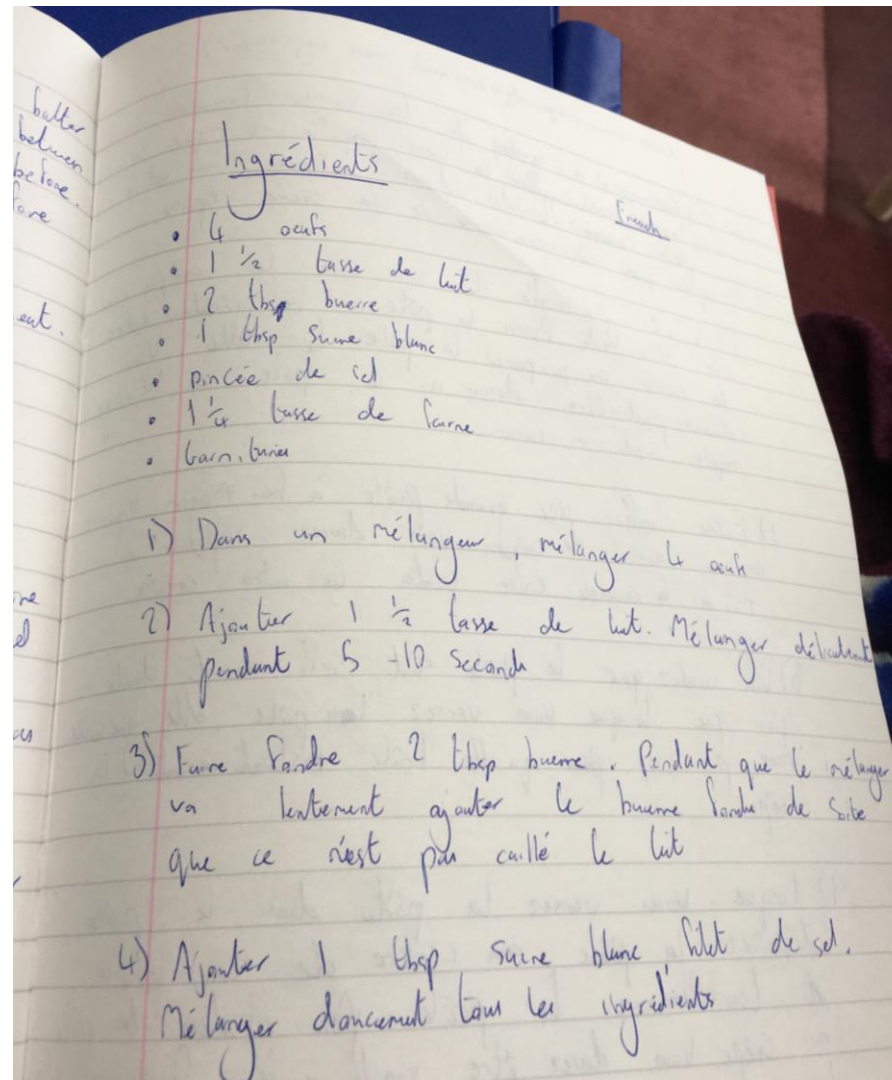 butter
between
before.
fore
ent.
Ingrédients
French
• 4 oeufs
• 1 ½ tasse de lait
• 2 tbsp buerre
• 1 tbsp sucre blanc
• pincée de sel
• 1 ¼ tasse de farne
• Garnitures
1) Dans un mélangeur, mélanger 4 oeufs
2) Ajoutier 1 ½ tasse de lait. Mélanger
pendant 5 -10 seconds
3) Faire fondre 2 tbsp buerre. Pendant que le mélanger
va lentement ajouter le buerre fondu de sorte
que ce n'est pas caillé le lait
4) Ajoutier 1 tbsp sucre blanc filet de sel.
Mélanger doucement tous les ingrédients